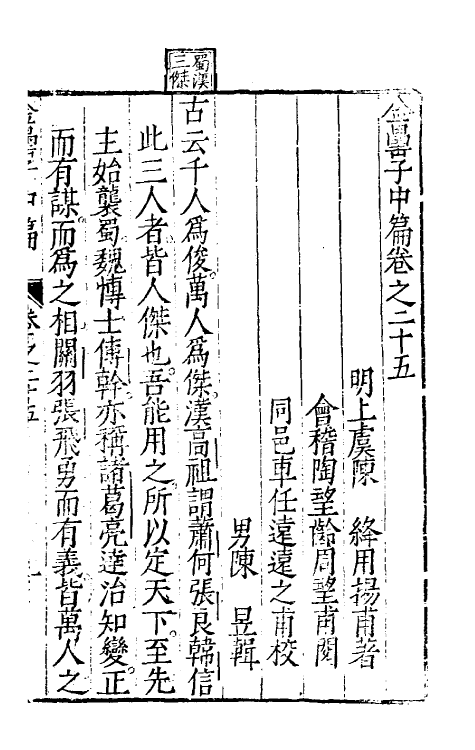 金罍子中篇卷之二十五
明上虞陳　絳用揚甫著
會稽陶望齡周望甫閱
同邑車任遠遠之甫校
男陳　昱輯
蜀漢三傑
古云千人爲俊萬人爲傑漢高祖謂蕭何張良韓信
此三人者皆人傑也吾能用之所以定天下至先
主始襲蜀魏愽士傅幹亦稱諸葛亮達治知變正
而有謀而爲之相關羽張飛勇而有義皆萬人之
金罍子中篇
卷之二十五
一